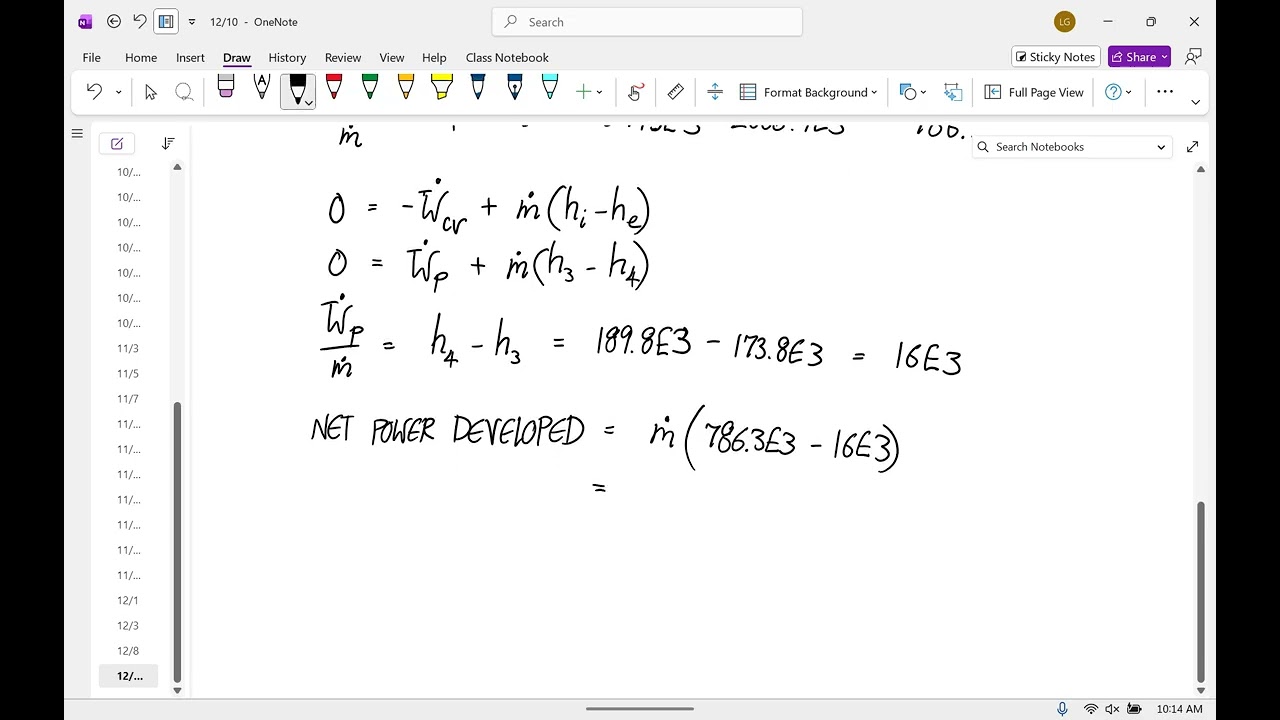 12/10 - OneNote
Search
LG
File Home Insert Draw History Review View Help Class Notebook
Sticky Notes
Share
Format Background
Full Page View
Search Notebooks
10/...
10/...
10/...
10/...
10/...
10/...
10/...
11/3
11/5
11/7
11/...
11/...
11/...
11/...
11/...
11/...
11/...
12/1
12/3
12/8
12/...
ṁ
0 = -Ẇcv + ṁ(hi - he)
0 = Ẇp + ṁ(h3 - h4)
Ẇp/ṁ = h4 - h3 = 189.8E3 - 173.8E3 = 16E3
NET POWER DEVELOPED = ṁ(786.3E3 - 16E3)
=
10:14 AM